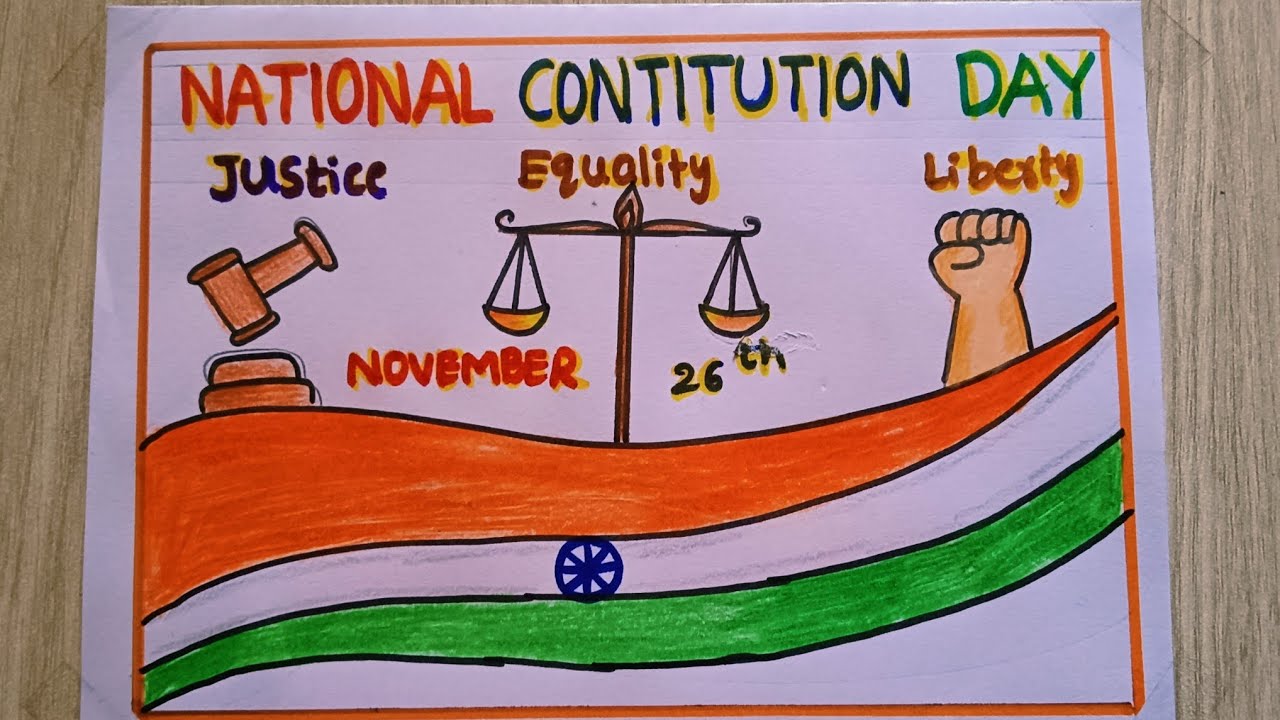 NATIONAL CONTITUTION DAY
Justice Equality Liberty
NOVEMBER 26th